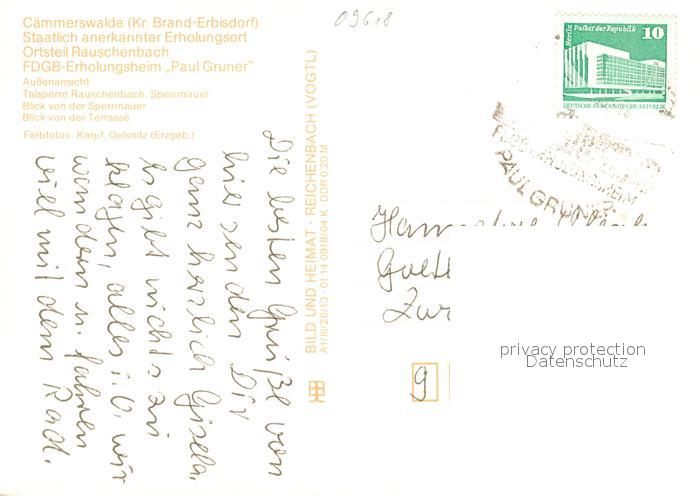 Cämmerswalde (Kr. Brand-Erbisdorf)
Staatlich anerkannter Erholungsort
Ortsteil Rauschenbach
FDGB-Erholungsheim „Paul Gruner"
Außenansicht
Talsperre Rauschenbach, Sperrmauer
Blick von der Sperrmauer
Blick von der Terrasse
Farbfotos: Karpf, Oelsnitz (Erzgeb.)
09618
Berlin Palast der Republik
10
DEUTSCHE DEMOKRATISCHE REPUBLIK
PAUL GRUNER
BILD UND HEIMAT · REICHENBACH (VOGTL)
A1/III/26/13 · 01 14 0918/04 K · DDR 0,20 M
Die besten Grüße von
hier senden Dir
ganz herzlich Gisela.
Es gibt nichts zu
klagen, alles i. O. wir
wandern u. fahren
viel mit dem Rad.
9
privacy protection
Datenschutz